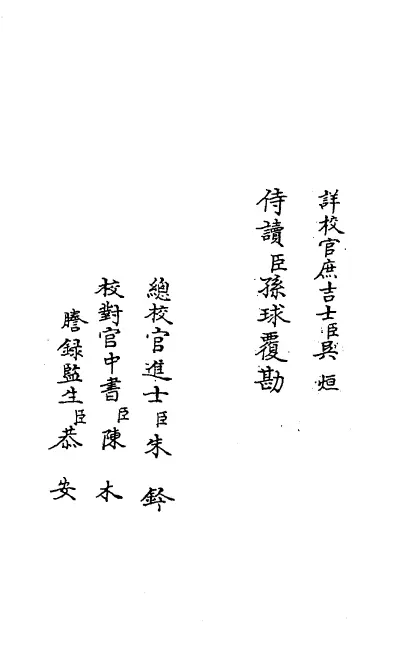 詳校官庶吉士臣吳烜
侍讀臣孫球覆勘
總校官進士臣朱鈐
校對官中書臣陳木
謄録監生臣恭安